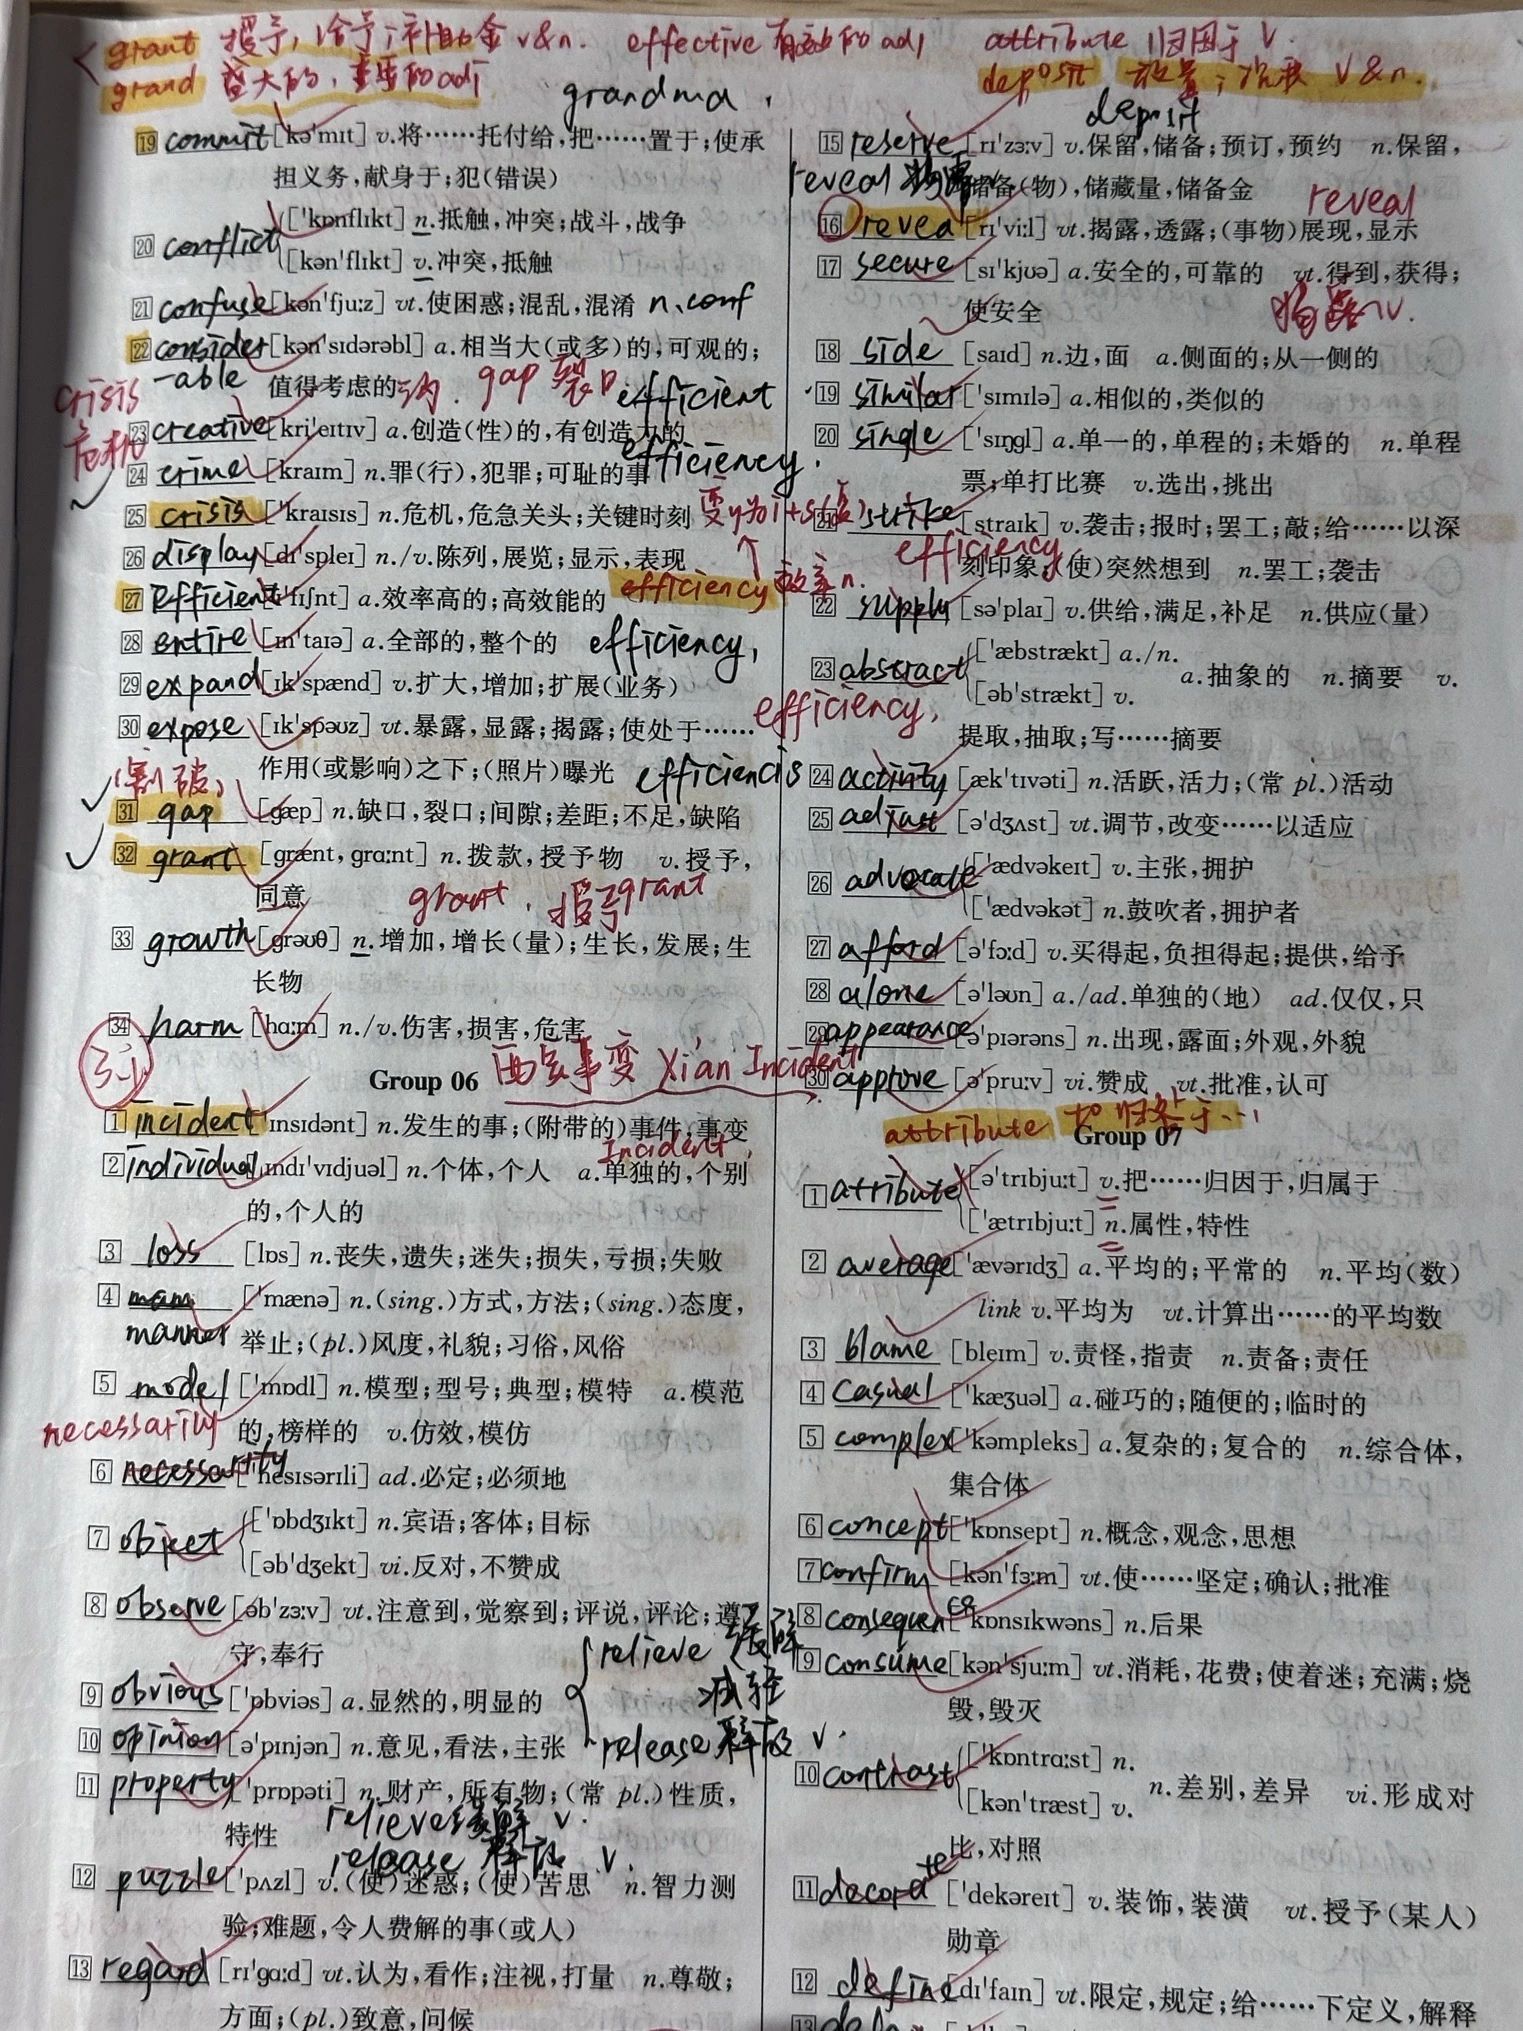 grant 授予,给予;补助金 v&n. effective 有效的 adj attribute 归因于 v.
grand 盛大的,重要的adj deposit 放置;沉积 v&n.
grandma, deposit
19 commit [kə'mɪt] v.将……托付给,把……置于;使承
担义务,献身于;犯(错误)
20 conflict ['kɒnflɪkt] n.抵触,冲突;战斗,战争
[kən'flɪkt] v.冲突,抵触
21 confuse [kən'fjuːz] vt.使困惑;混乱,混淆 n. conf
22 consider [kən'sɪdərəbl] a.相当大(或多)的,可观的;
-able 值得考虑的 gap 裂口 efficient
crisis
危机
23 creative [kri'eɪtɪv] a.创造(性)的,有创造力的
efficiency.
24 crime [kraɪm] n.罪(行),犯罪;可耻的事
25 crisis ['kraɪsɪs] n.危机,危急关头;关键时刻 变y为i+es(复)
26 display [dɪ'spleɪ] n./v.陈列,展览;显示,表现
27 Efficient [ɪ'fɪʃnt] a.效率高的;高效能的 efficiency 效率n.
28 entire [ɪn'taɪə] a.全部的,整个的 efficiency,
29 expand [ɪk'spænd] v.扩大,增加;扩展(业务)
30 expose [ɪk'spəʊz] vt.暴露,显露;揭露;使处于…… efficiency,
作用(或影响)之下;(照片)曝光 efficiencis
31 gap [gæp] n.缺口,裂口;间隙;差距;不足,缺陷
32 grant [grænt, grɑːnt] n.拨款,授予物 v.授予,
同意 grant, 授予 grant
33 growth [grəʊθ] n.增加,增长(量);生长,发展;生
长物
34 harm [hɑːm] n./v.伤害,损害,危害
Group 06 西安事变 Xi'an Incident
1 incident ['ɪnsɪdənt] n.发生的事;(附带的)事件,事变
Incident,
2 individual [ˌɪndɪ'vɪdjuəl] n.个体,个人 a.单独的,个别
的,个人的
3 loss [lɒs] n.丧失,遗失;迷失;损失,亏损;失败
4 mam ['mænə] n.(sing.)方式,方法;(sing.)态度,
manner 举止;(pl.)风度,礼貌;习俗,风俗
5 model ['mɒdl] n.模型;型号;典型;模特 a.模范
necessarily 的,榜样的 v.仿效,模仿
6 necessarily ['nesɪsərɪli] ad.必定;必须地
7 object ['ɒbdʒɪkt] n.宾语;客体;目标
[əb'dʒekt] vi.反对,不赞成
8 observe [əb'zɜːv] vt.注意到,觉察到;评说,评论;遵
守,奉行 relieve 缓解
9 obvious ['ɒbviəs] a.显然的,明显的 减轻
10 opinion [ə'pɪnjən] n.意见,看法,主张 release 释放 v.
11 property ['prɒpəti] n.财产,所有物;(常 pl.)性质,
特性 relieve 缓解 v.
release 释放 v.
12 puzzle ['pʌzl] v.(使)迷惑;(使)苦思 n.智力测
验;难题,令人费解的事(或人)
13 regard [rɪ'gɑːd] vt.认为,看作;注视,打量 n.尊敬;
方面;(pl.)致意,问候
15 reserve [rɪ'zɜːv] v.保留,储备;预订,预约 n.保留,
reveal 储备(物),储藏量,储备金 reveal
16 revea [rɪ'viːl] vt.揭露,透露;(事物)展现,显示
17 secure [sɪ'kjʊə] a.安全的,可靠的 vt.得到,获得;
使安全 揭露 v.
18 side [saɪd] n.边,面 a.侧面的;从一侧的
19 similar ['sɪmɪlə] a.相似的,类似的
20 single ['sɪŋgl] a.单一的,单程的;未婚的 n.单程
票;单打比赛 v.选出,挑出
21 strike [straɪk] v.袭击;报时;罢工;敲;给……以深
efficiency
刻印象;(使)突然想到 n.罢工;袭击
22 supply [sə'plaɪ] v.供给,满足,补足 n.供应(量)
23 abstract ['æbstrækt] a./n. a.抽象的 n.摘要 v.
[əb'strækt] v.
提取,抽取;写……摘要
24 activity [æk'tɪvəti] n.活跃,活力;(常 pl.)活动
25 adjust [ə'dʒʌst] vt.调节,改变……以适应
26 advocate ['ædvəkeɪt] v.主张,拥护
['ædvəkət] n.鼓吹者,拥护者
27 afford [ə'fɔːd] v.买得起,负担得起;提供,给予
28 alone [ə'ləʊn] a./ad.单独的(地) ad.仅仅,只
29 appearance [ə'pɪərəns] n.出现,露面;外观,外貌
30 approve [ə'pruːv] vi.赞成 vt.批准,认可
attribute 把归于…
Group 07
1 attribute [ə'trɪbjuːt] v.把……归因于,归属于
['ætrɪbjuːt] n.属性,特性
2 average ['ævərɪdʒ] a.平均的;平常的 n.平均(数)
link v.平均为 vt.计算出……的平均数
3 blame [bleɪm] v.责怪,指责 n.责备;责任
4 casual ['kæʒuəl] a.碰巧的;随便的;临时的
5 complex ['kəmpleks] a.复杂的;复合的 n.综合体,
集合体
6 concept ['kɒnsept] n.概念,观念,思想
7 confirm [kən'fɜːm] vt.使……坚定;确认;批准
8 consequence ['kɒnsɪkwəns] n.后果
9 consume [kən'sjuːm] vt.消耗,花费;使着迷;充满;烧
毁,毁灭
10 contrast ['kɒntrɑːst] n. n.差别,差异 vi.形成对
[kən'træst] v.
比,对照
11 decorate ['dekəreɪt] v.装饰,装潢 vt.授予(某人)
勋章
12 define [dɪ'faɪn] vt.限定,规定;给……下定义,解释
13